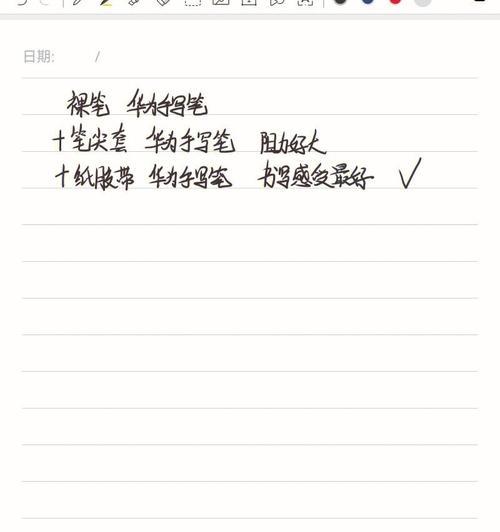 日期: /
裸笔 华为手写笔
+笔尖套 华为手写笔 阻力好大
+纸胶带 华为手写笔 书写感受最好 ✓